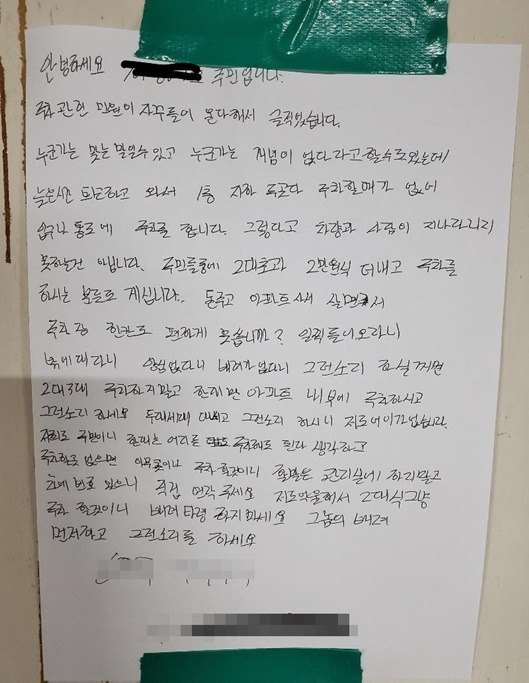 안녕하세요 주민입니다.
주차관련 민원이 자꾸들이 온다해서 글적었습니다.
누군가는 맞는말일수 있고 누군가는 개념이 없다라고 할수도있는데
늦은시간 퇴근하고 와서 1층 지하 두곳다 주차할때가 없어
입구나 통로에 주차를 합니다. 그렇다고 차량과 사람이 지나다니지
못하는건 아닙니다. 주민들중에 2대초과 2만원식 더내고 주차를
하시는 분들도 계십니다. 돈주고 아파트 사서 살면서
주차장 한칸도 편하게 못씁니까? 일찍들어오라니
밖에대라니 상식없다니 배려가없다니 그런소리 하실꺼면
2대3대 주차하지말고 한대만 아파트 내부에 주차하시고
그런소리 하세요 두대세대 대놓고 그런소리 하시니 저도 어이가없습니다.
저희도 주민이니 한대는 어디를 주차해도 된다 생각하고
주차할곳 없으면 아무곳이나 주차 할것이니 할말은 관리실에 하지말고
차에 번호 있으니 직접 연락 주세요 저도 억울해서 2대식 그냥
주차 할것이니 배려 타령 하지마세요 그놈의 배려
먼저하고 그런소리들 하세요